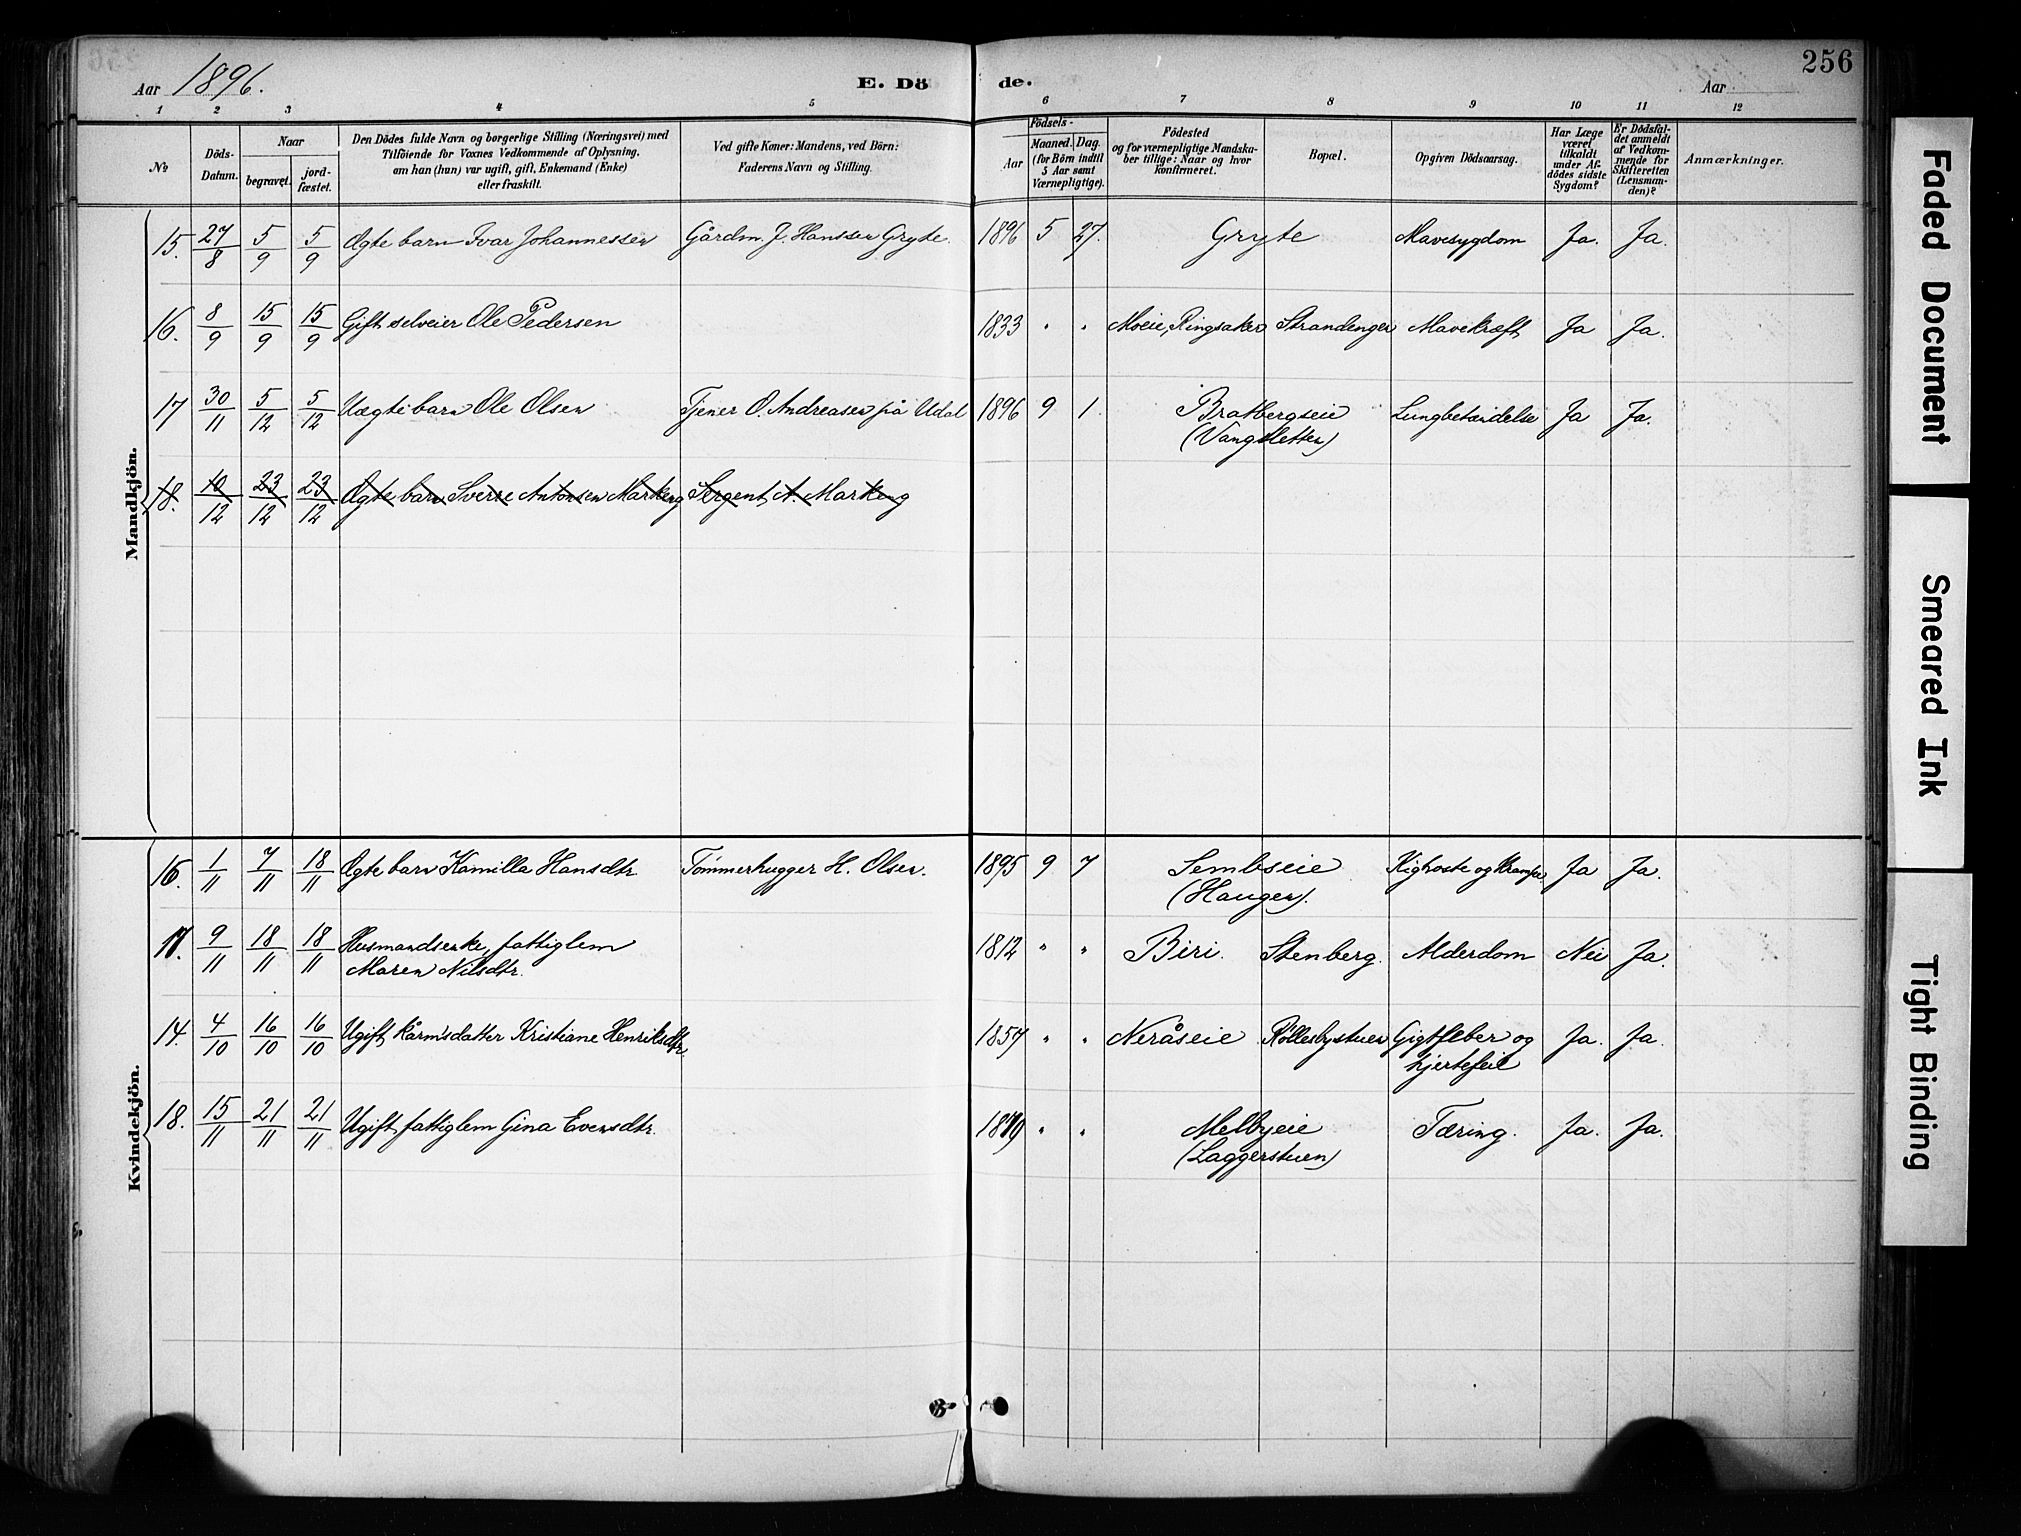 256
Aar 1896.
E. Dö
de.
Aar
1 2 3 4 5 6 7 8 9 10 11 12
No
Döds-Datum.
Naar
begravet.
jord-fæstet.
Den Dödes fulde Navn og borgerlige Stilling (Næringsvei) med
Tilföiende for Voxnes Vedkommende af Oplysning,
om han (hun) var ugift, gift, Enkemand (Enke)
eller fraskilt.
Ved gifte Koner: Mandens, ved Börn:
Faderens Navn og Stilling.
Födsels-
Aar
Maaned. Dag.
(for Börn indtil
5 Aar samt
Værnepligtige).
Födested
og for værnepligtige Mandska-
ber tillige: Naar og hvor
konfirmeret.
Bopæl.
Opgiven Dödsaarsag.
Har Læge
været
tilkaldt
under Af-
dödes sidste
Sygdom?
Er Dödsfal-
det anmeldt
af Vedkom-
mende for
Skifteretten
(Lensman-
den)?
Anmærkninger.
Mandkjön.
15. 27/8 5/9 5/9 Ægte barn Ivar Johannessen Gårdm. J. Hanssen Gryte. 1896 5 27. Gryte Mavesygdom Ja. Ja.
16. 8/9 15/9 15/9 Gift selveier Ole Pedersen 1833 " " Moeie, Ringsaker Strandenger Mavekræft Ja Ja.
17 30/11 5/12 5/12 Uægte barn Ole Olsen Tjener O. Andreasen på Udal 1896 9 1. Bratbergseie Lungbetændelse Ja Ja.
(Vangsletten)
18. 10/12 23/12 23/12 Ægte barn Sverre Antonsen Markeng Sergent A. Markeng
Kvindekjön.
16. 1/11 7/11 18/11 Ægte barn Kamilla Hansdtr. Tömmerhugger H. Olsen. 1895 9 7 Sembseie Kighoste og Krampe Ja Ja.
(Haugen).
17. 9/11 18/11 18/11 Husmandsenke, fattiglem 1812 " " Biri. Stenberg. Alderdom Nei Ja.
Maren Nilsdtr.
14. 4/10 16/10 16/10 Ugift kårm'sdatter Kristiane Henriksdtr 1857 " " Neråseie Röllesbystuen Gigtfeber og Ja. Ja.
hjertefeil
18. 15/11 21/11 21/11 Ugift fattiglem Gina Evensdtr. " " Melbyeie Tæring. Ja. Ja.
(Laggerstuen)
Faded Document
Smeared Ink
Tight Binding